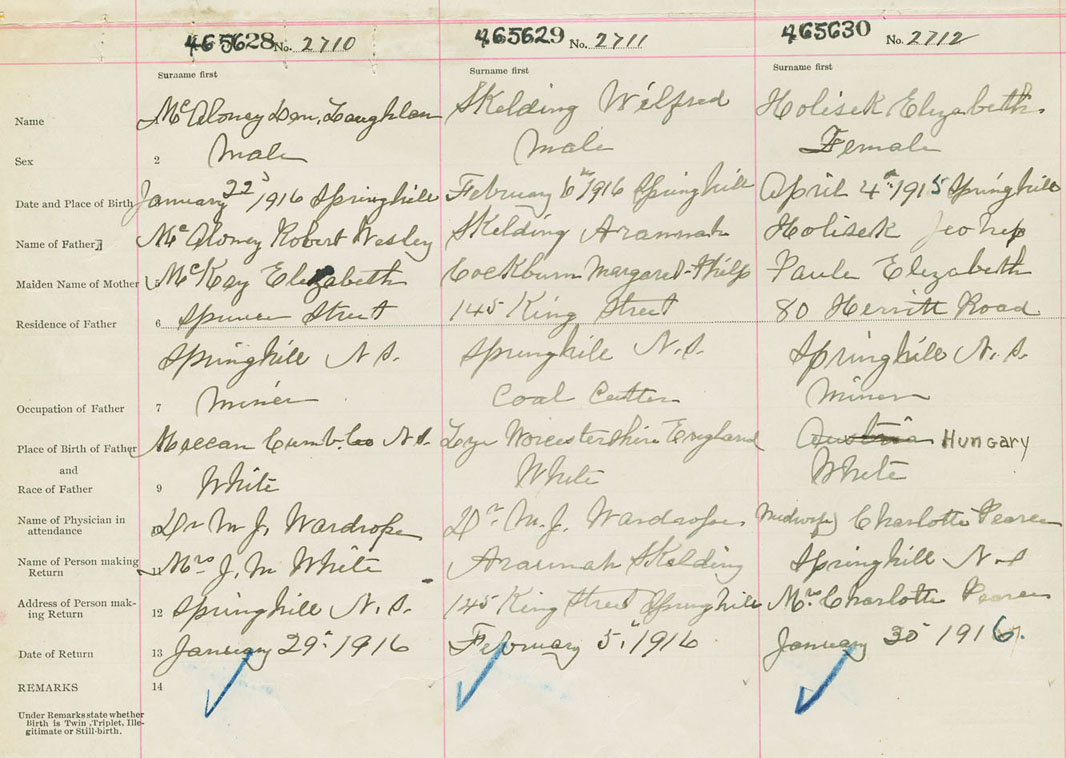 465628 No. 2710 465629 No. 2711 465630 No. 2712
Surname first Surname first Surname first
Name McAloney Laughlan Skelding Wilfred Holisek Elizabeth
Sex 2 Male Male Female
Date and Place of Birth January 22 1916 Springhill February 1916 Springhill April 4th 1915 Springhill
Name of Father McAloney Robert Wesley Skelding Holisek
Maiden Name of Mother McKay Elizabeth Cockburn Margaret Paule Elizabeth
Residence of Father 6 Street 145 King Street 80 Road
Springhill N S. Springhill N.S. Springhill N.S.
Occupation of Father 7 Miner Coal Cutter Miner
Place of Birth of Father Maccan N.S. Lye Worcestershire England Austria Hungary
and
Race of Father 9 White White White
Name of Physician in attendance Dr M J. Wardrope Dr. M.J. Wardrope Midwife Charlotte Pearce
Name of Person making Return 11 Mrs J. M White Skelding Springhill N.S
Address of Person making Return 12 Springhill N.S. 145 King Street Springhill Mrs Charlotte Pearce
Date of Return 13 January 29 1916 February 5 1916 January 30 1916
REMARKS 14
Under Remarks state whether
Birth is Twin, Triplet, Ille-
gitimate or Still-birth.